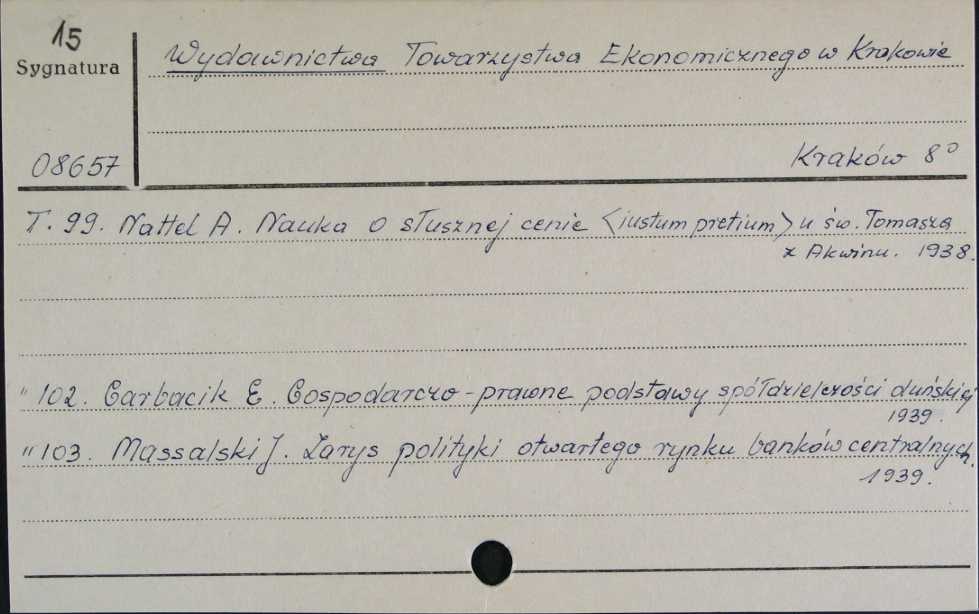 15
Sygnatura
08657
Wydawnictwa Towarzystwa Ekonomicznego w Krakowie
Kraków 8°
T. 99. Nattel A. Nauka o słusznej cenie <iustum pretium> u św. Tomasza
z Akwinu. 1938.
" 102. Garbacik E. Gospodarczo-prawne podstawy spółdzielczości duńskiej
1939.
" 103. Massalski J. Zarys polityki otwartego rynku banków centralnych.
1939.